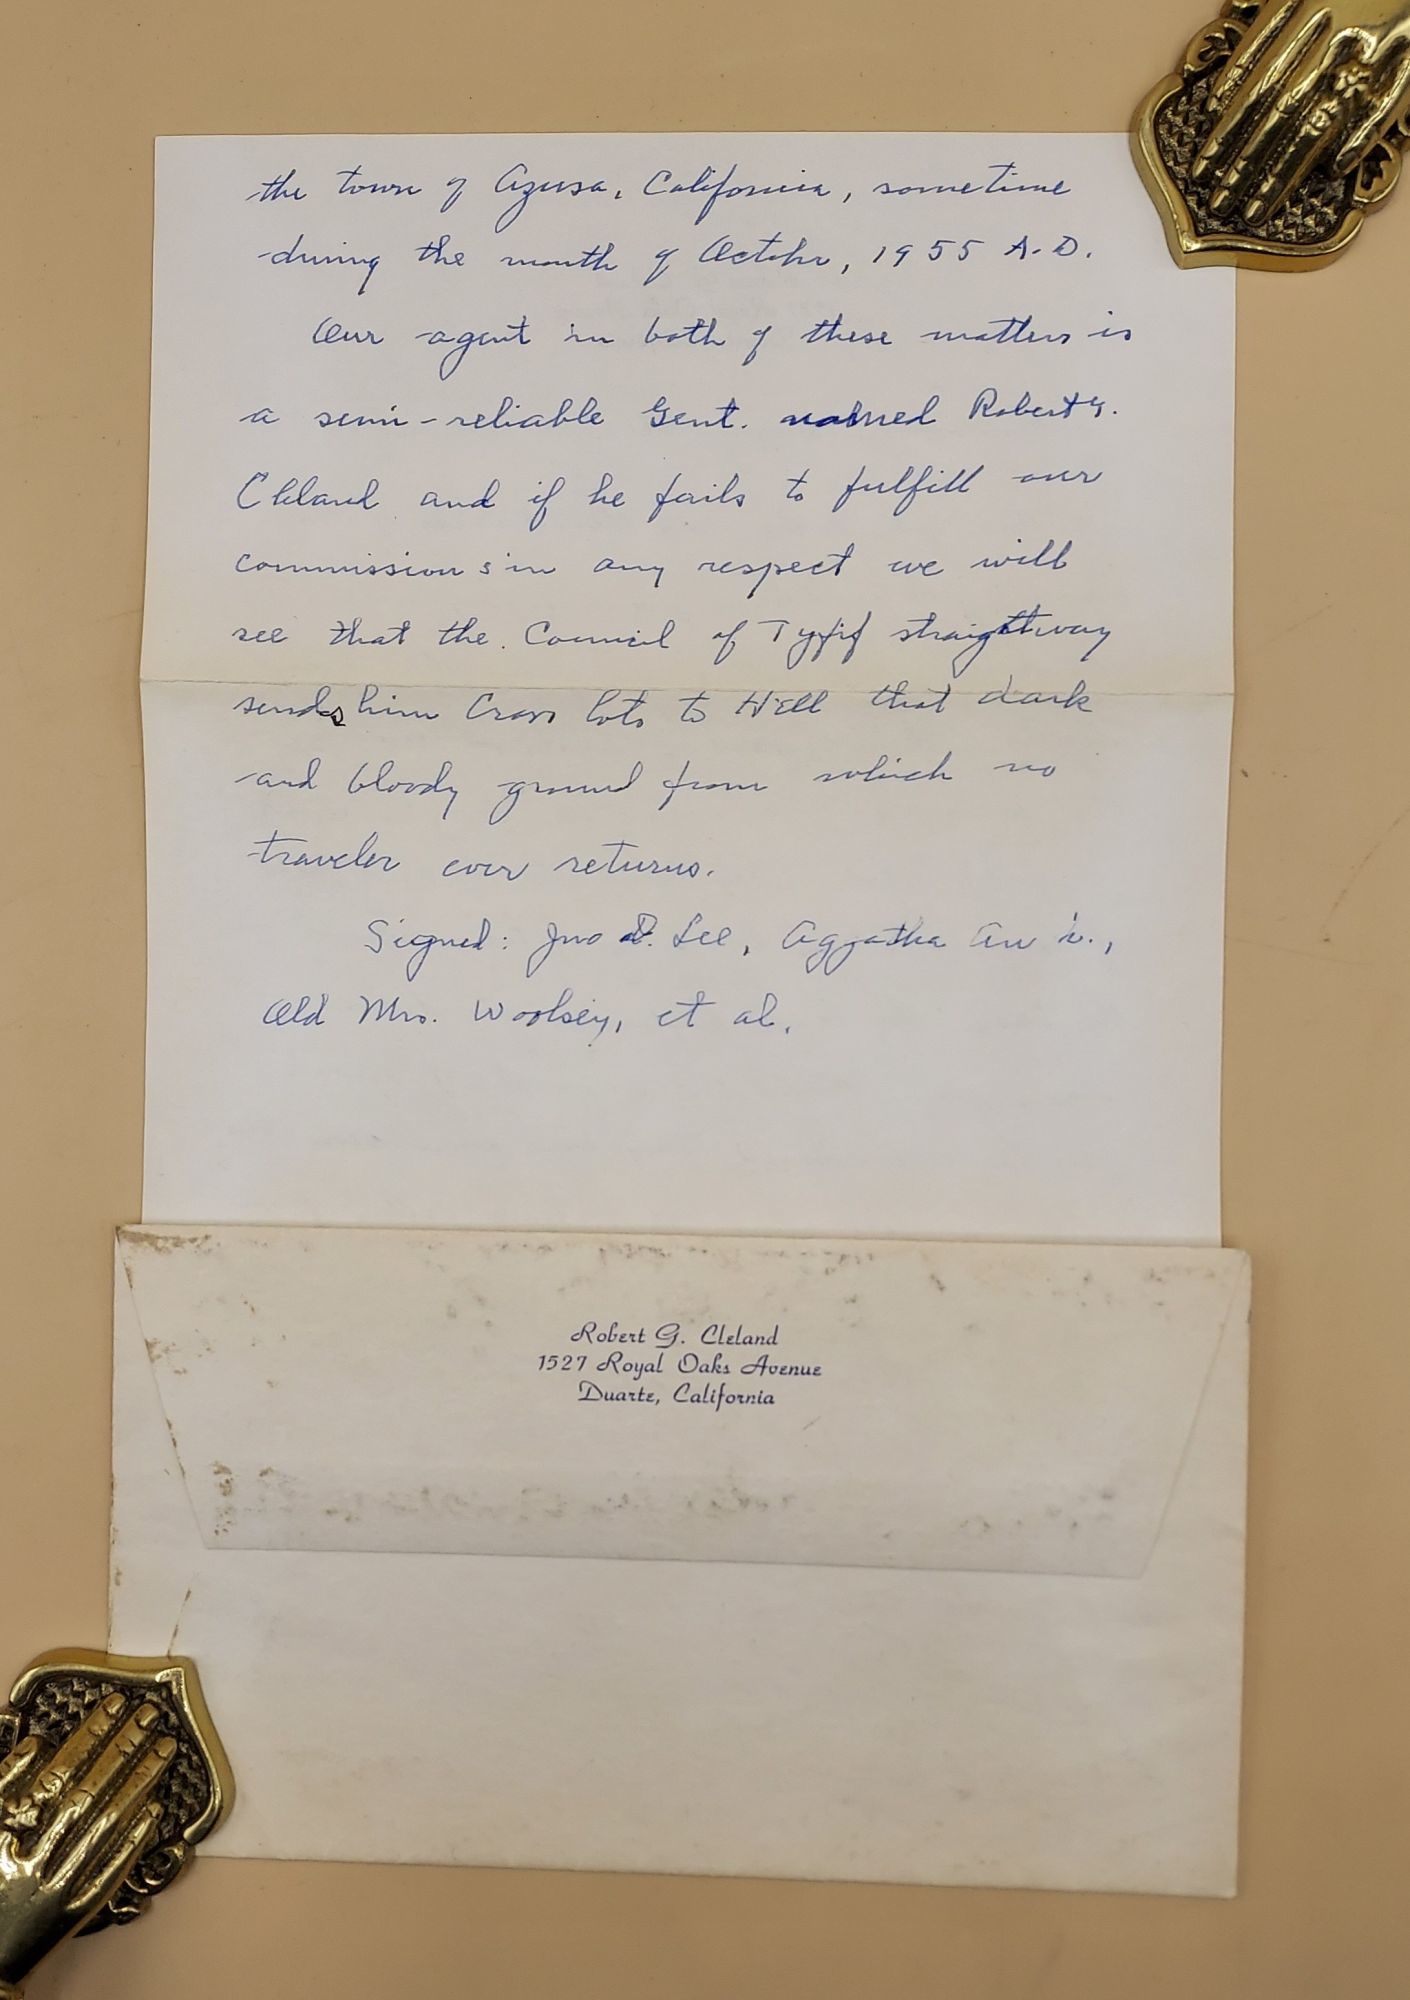 the town of Azusa, California, sometime
during the month of October, 1955 A.D.
Our agent in both of these matters is
a semi-reliable Gent. named Robert G.
Cleland and if he fails to fulfill our
commissions in any respect we will
see that the Council of straightway
sends him Cross lots to Hell that dark
and bloody ground from which no
traveler ever returns.
Signed: Jno D. Lee, Aggatha Ann
Old Mrs. Woolsey, et al.
Robert G. Cleland
1527 Royal Oaks Avenue
Duarte, California